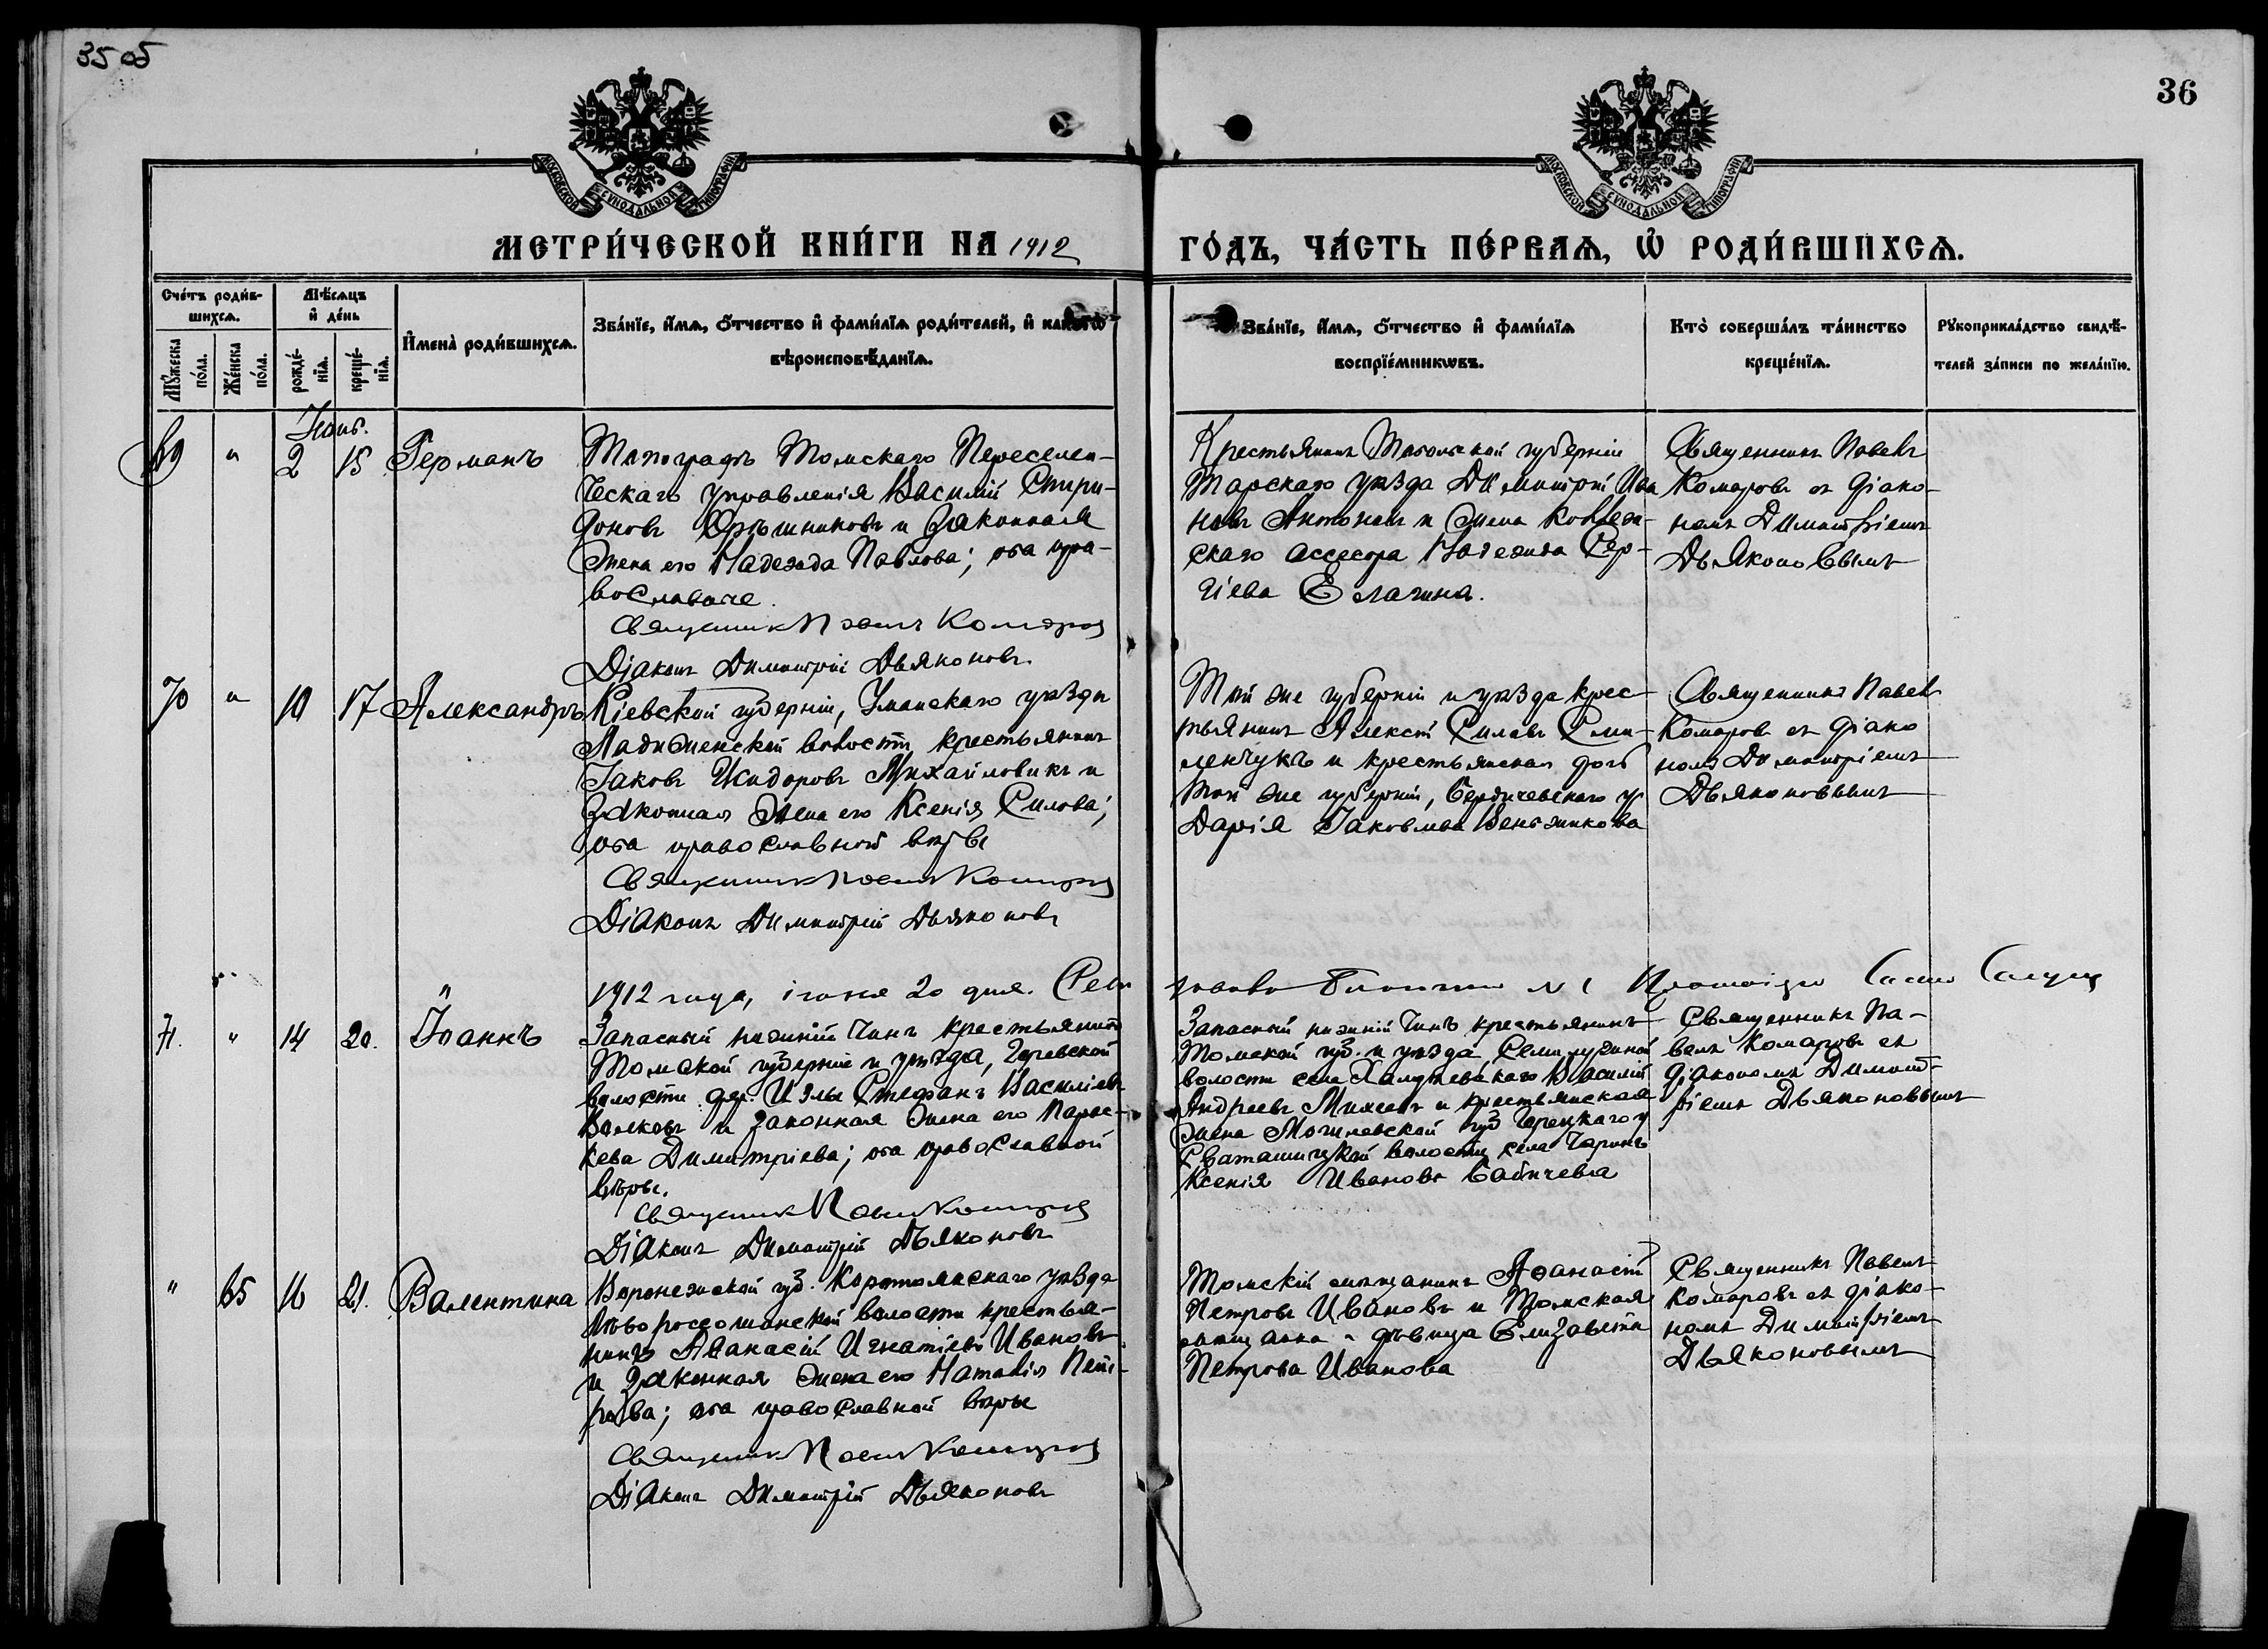 35 об
36
МОСКОВСКОЙ СѴНОДАЛЬНОЙ ТИПОГРАФІИ
МОСКОВСКОЙ СѴНОДАЛЬНОЙ ТИПОГРАФІИ
МЕТРИ́ЧЕСКОЙ КНИ́ГИ НА 1912 ГО́ДЪ, ЧА́СТЬ ПЕ́РВАѦ, Ѡ҆ РОДИ́ВШИХСѦ.
Сче́тъ роди́в-
шихсѧ.
Мꙋ́жеска
по́ла.
Же́нска
по́ла.
Мѣ́сѧцъ
и҆ де́нь
рожде́-
нїѧ.
креще́-
нїѧ.
И҆мена̀ роди́вшихсѧ.
Зва́нїе, и҆́мѧ, ѻ҆́тчество и҆ фами́лїѧ роди́телей, и҆ како́гѡ
вѣроисповѣ́данїѧ.
Зва́нїе, и҆́мѧ, ѻ҆́тчество и҆ фами́лїѧ
воспрїе́мникѡвъ.
Кто̀ соверша́лъ та́инство
креще́нїѧ.
Рꙋкоприкла́дство свидѣ́-
телей за́писи по жела́нїю.
69 " 2 15 Германъ
Топографъ Томскаго Переселен-
ческаго управленія Василій Спири-
доновъ и законная
жена его Надежда Павлова; оба пра-
вославные.
Священникъ Павелъ Комаровъ
Діаконъ Димитрій Дьяконовъ.
Крестьянинъ Тобольской губерніи
Тарскаго уѣзда Димитрій Ива
новъ Антоновъ и жена коллеж-
скаго ассесора Надежда Сер-
гіева Елагина.
Священникъ Павелъ
Комаровъ съ діако-
номъ Димитріемъ
Дьяконовымъ
70 " 10 17 Александръ
Кіевской губерніи, Уманскаго уѣзда
Ладыженской волости, крестьянинъ
Іаковъ Исидоровъ Михайловикъ и
законная жена его Ксенія Силова;
оба православной вѣры
Священникъ Павелъ Комаровъ
Діаконъ Димитрій Дьяконовъ
Той же губерніи и уѣзда крес-
тьянинъ Алексій Силовъ
и крестьянская дочь
той же губерніи, Бердичевскаго у.
Дарія Іаковлева
Священникъ Павелъ
Комаровъ съ діако
номъ Димитріемъ
Дьяконовымъ
1912 года, іюня 20 дня.
71. " 14 20. Іоаннъ
Запасный нижній чинъ крестьянинъ
Томской губерніи и уѣзда,
волости дер. Стефанъ Васильевъ
Волковъ и законная жена его Парас-
кева Димитріева; оба православной
вѣры.
Священникъ Павелъ Комаровъ
Діаконъ Димитрій Дьяконовъ
Запасный нижній чинъ крестьянинъ
Томской губ. и уѣзда Семилужной
волости села Халдѣевскаго Василій
Андреевъ Михеевъ и крестьянская
жена Могилевской губ.
волости села
Ксенія Иванова Бабичева
Священникъ Па-
велъ Комаровъ съ
діакономъ Димит-
ріемъ Дьяконовымъ
" 65 16 21. Валентина
Воронежской губ. Коротоякскаго уѣзда
волости крестья-
нинъ Аѳанасій Игнатіевъ Ивановъ
и законная жена его Наталія Пет-
рова; оба православной вѣры
Священникъ Павелъ Комаровъ
Діаконъ Димитрій Дьяконовъ
Томскій мѣщанинъ Аѳанасій
Петровъ Ивановъ и Томская
мѣщанка - дѣвица Елизавета
Петрова Иванова
Священникъ Павелъ
Комаровъ съ діако-
номъ Димитріемъ
Дьяконовымъ